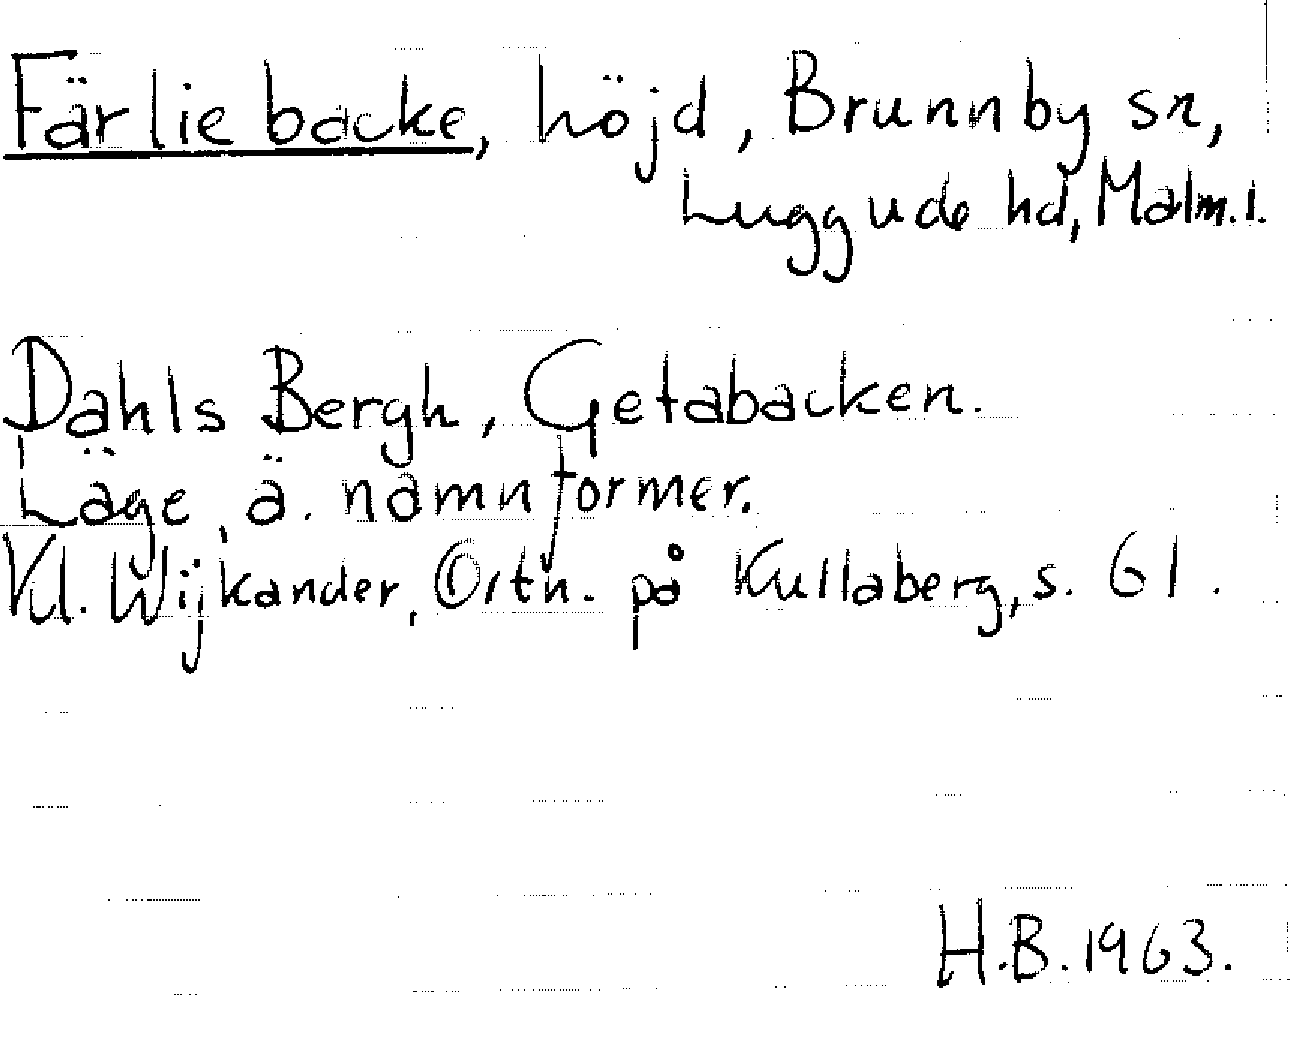 Färlie backe, höjd, Brunnby sn,
Luggude hd, Malm.l.
Dahls Bergh, Getabacken.
Läge, ä. namnformer.
Vd. Wijkander, Ortn. på Kullaberg, s. 61.
H.B. 1963.